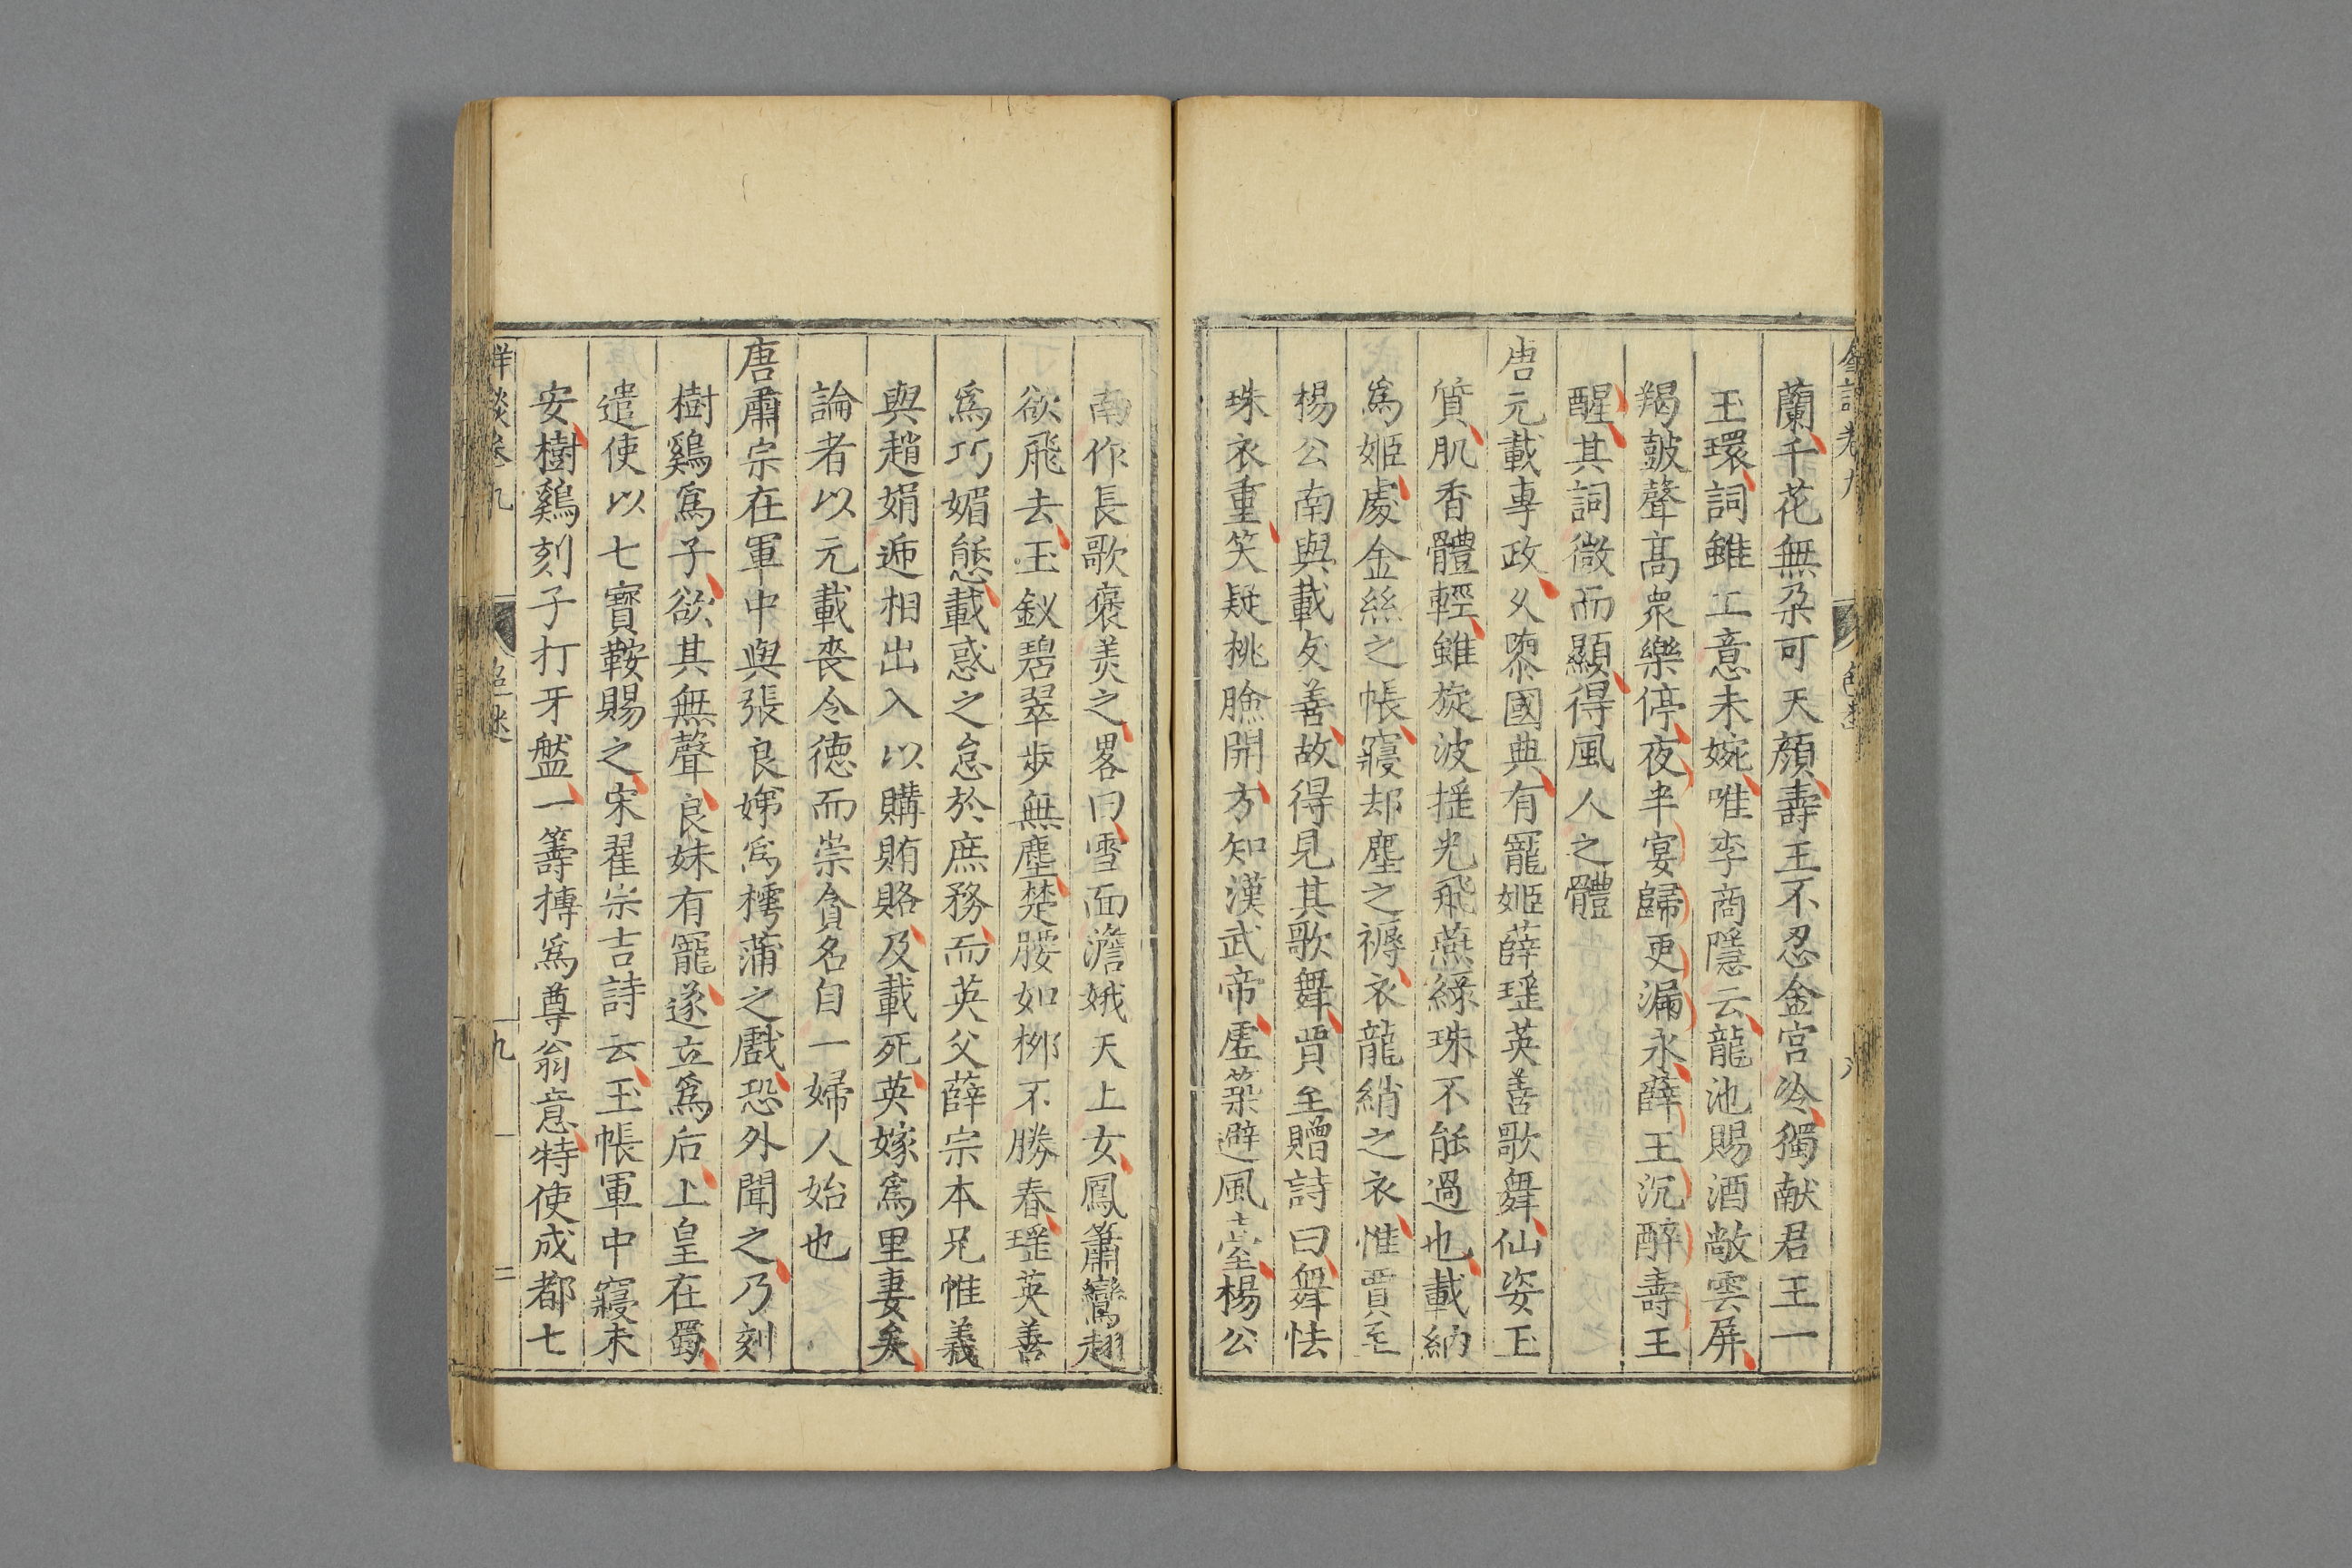 蘭千花無朶可天顏壽王不忍金宫冷獨献君王一
玉環詞雖工意未婉唯李商隱云龍池賜酒敞雲屏
羯皷聲高衆樂停夜半宴歸更漏永薛王沉醉壽王
醒其詞微而顯得風人之體
唐元載專政乆隳國典有寵姬薛瑶英善歌舞仙姿玉
質肌香體輕雖旋波摇光飛燕緑珠不能過也載納
爲姬處金絲之帳寢却塵之褥衣龍綃之衣惟賈至
楊公南與載友善故得見其歌舞賈至贈詩曰舞怯
珠衣重笑疑桃臉開方知漢武帝虚築避風臺楊公
南作長歌褒美之畧曰雪面澹娥天上女鳳簫鸞翅
欲飛去玉釵碧翠步無塵楚腰如栁不勝春瑶英善
爲巧媚態載惑之怠於庶務而英父薛宗本兄惟義
與趙娟逓相出入以購賄賂及載死英嫁爲里妻矣
論者以元載喪令德而崇貪名自一婦人始也
唐肅宗在軍中與張良娣爲樗蒲之戲恐外聞之乃刻
樹鷄爲子欲其無聲良妹有寵遂立爲后上皇在蜀
遣使以七寶鞍賜之宋翟宗吉詩云玉帳軍中寢未
安樹鷄刻子打牙盤一籌摶爲尊翁意特使成都七
卷九
九
二